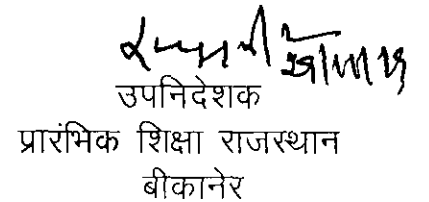 उपनिदेशक
प्रारंभिक शिक्षा राजस्थान
बीकानेर